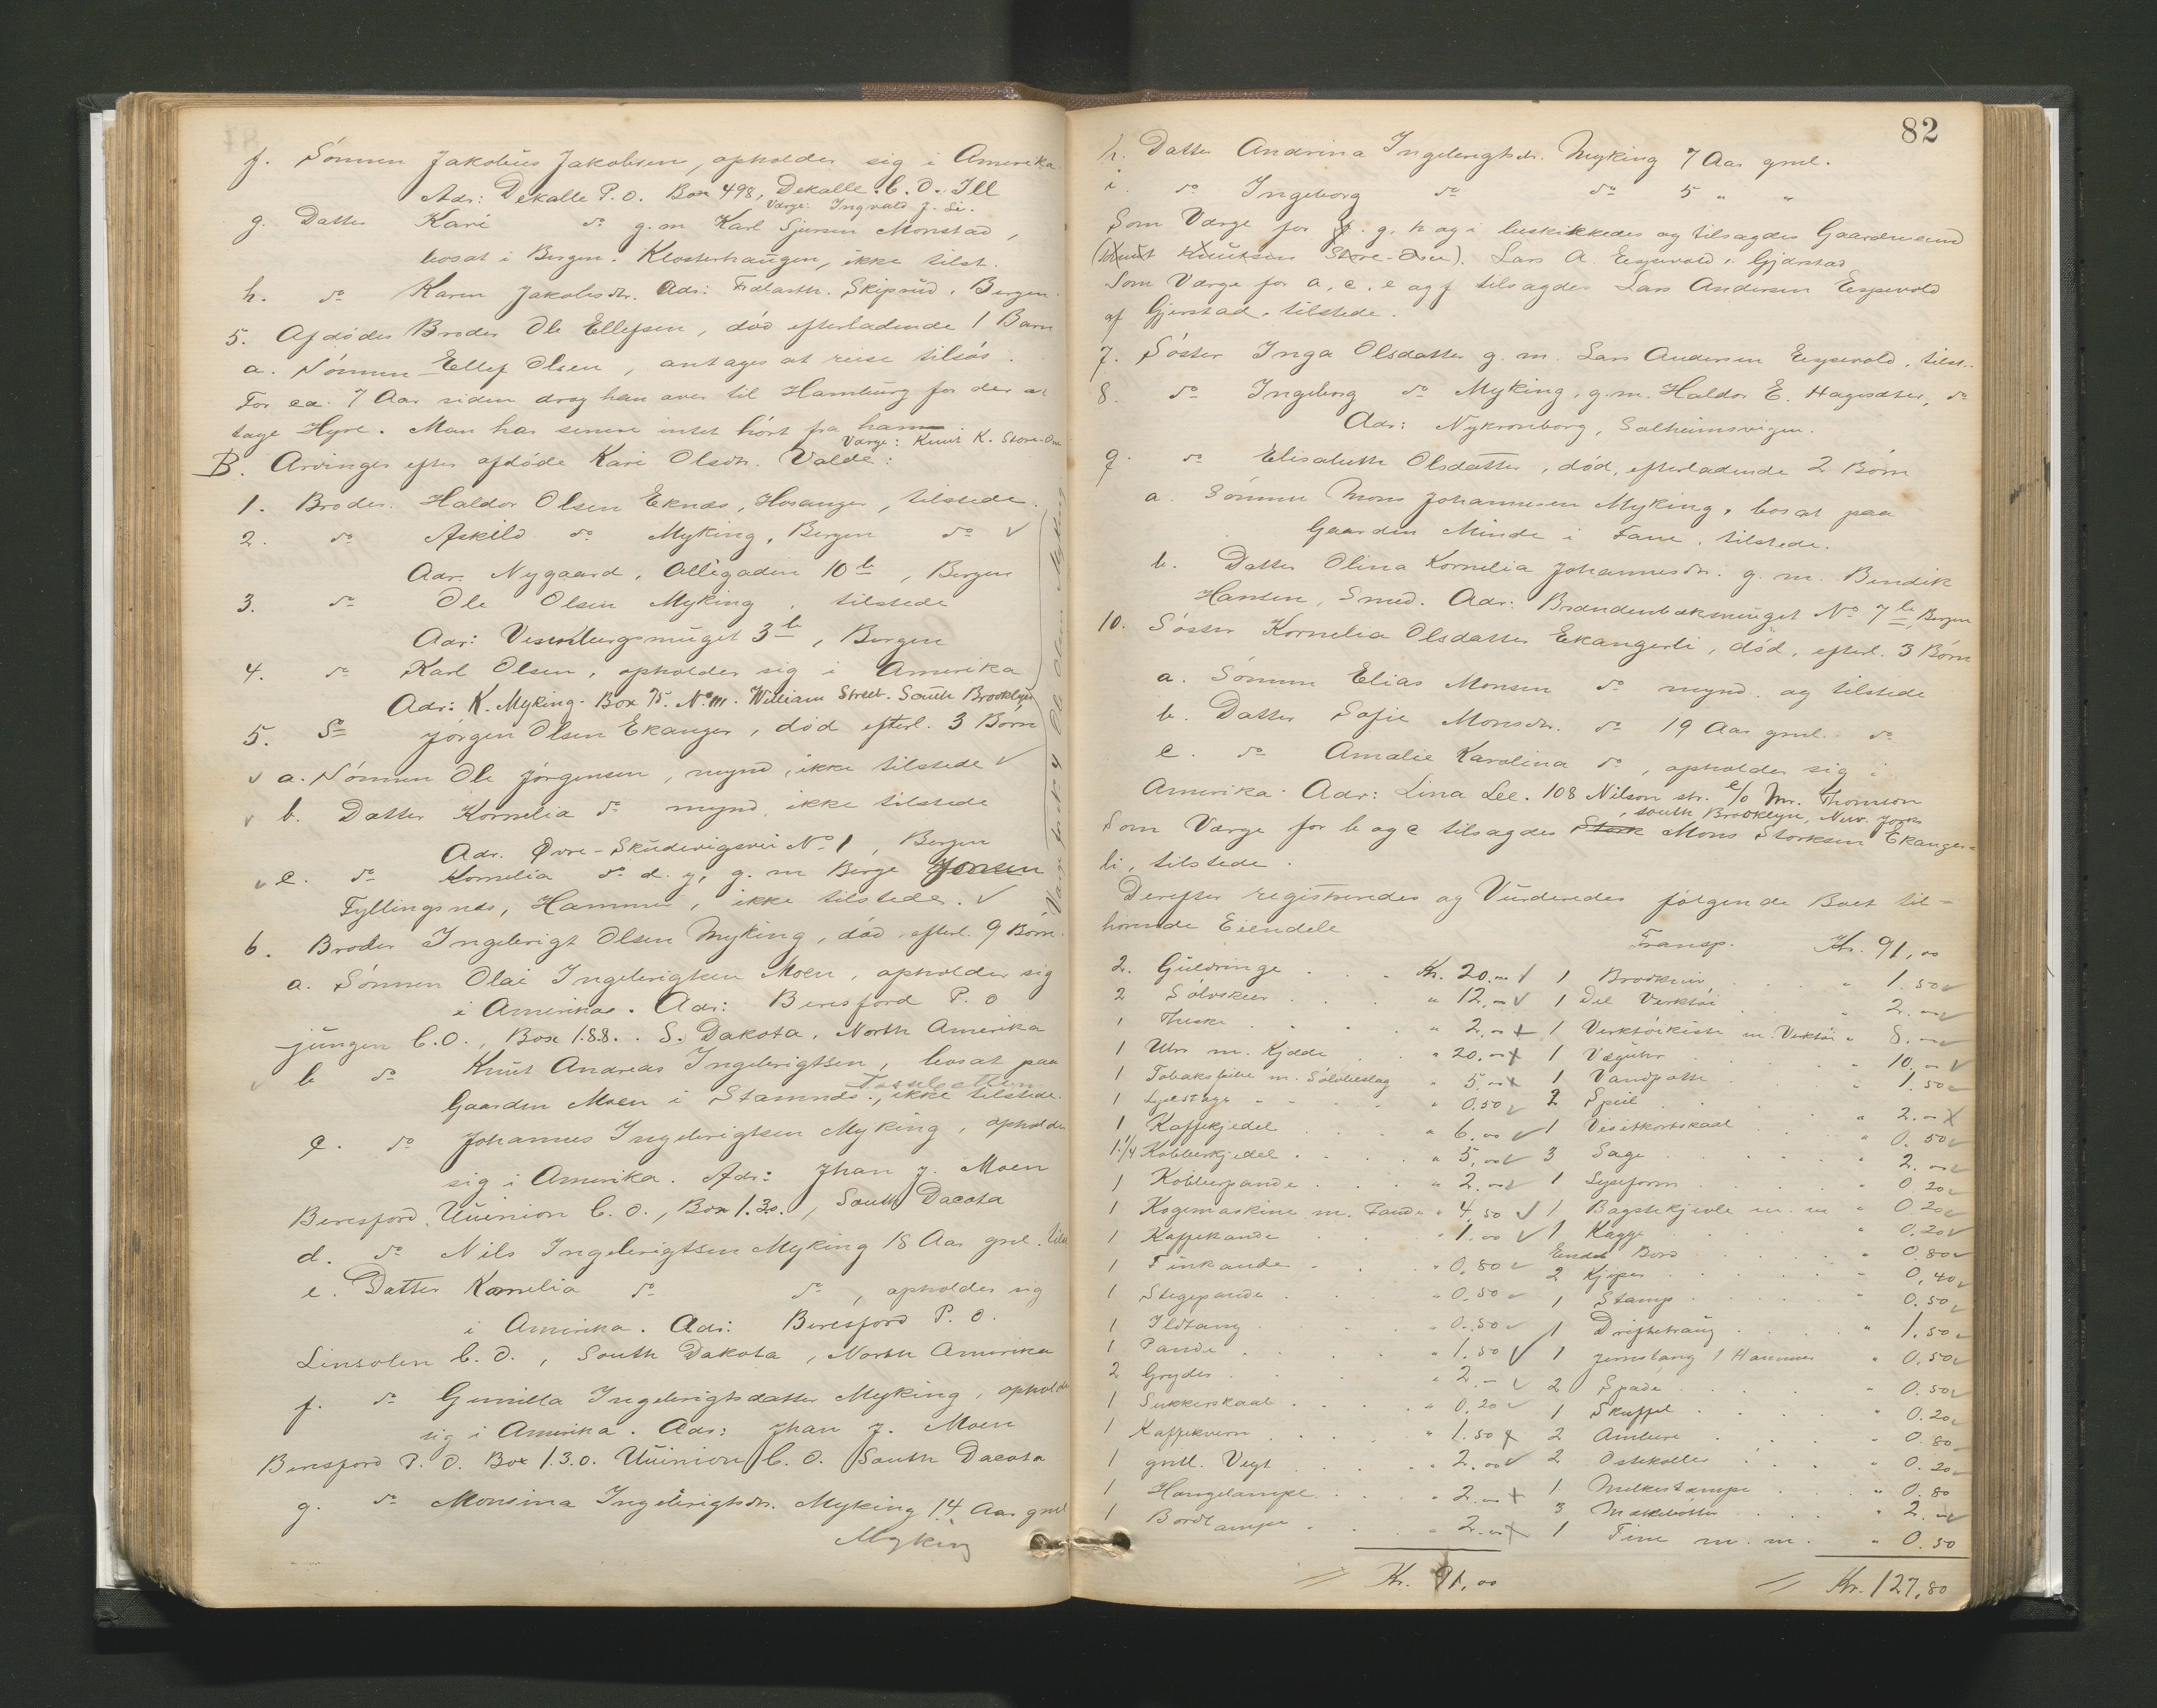 f. Sönnen Jakobus Jakobsen, opholder sig i Amerika
Adr: Dekalle P.O. Box 498, Dekalle C.O. Ill
Værge: Ingvald J. Li.
g. Datter Kari do g.m. Karl Sjursen Monstad,
bosat i Bergen. Klosterhaugen, ikke tilst.
h. do Karen Jakobsdtr. Adr: Skipsud. Bergen.
5. Afdödes Broder Ole Ellefsen, död efterladende 1 Barn
a. Sönnen Ellef Olsen, antages at reise tilsös.
For ca. 7 Aar siden drog han over til Hamburg for der at
tage Hyre. Man har senere intet hört fra ham.
Værge: Knut K. Store-Om
B. Arvinger efter afdöde Kari Olsdtr. Valde:
1. Broder. Haldor Olsen Eknæs, Hosanger, tilstede.
2. do Askild do Myking, Bergen do ✓
Adr. Nygaard, Allégaden 10 b, Bergen
3. do Ole Olsen Myking, tilstede
Adr: 3 b, Bergen
4. do Karl Olsen, opholder sig i Amerika
Adr: K. Myking. Box 75. No 111. William Street. South Brooklyn
5. do Jörgen Olsen Ekanger, död efterl. 3 Börn
✓ a. Sönnen Ole Jörgensen, mynd, ikke tilstede ✓
✓ b. Datter Kornelia do mynd. ikke tilstede
Adr. Øvre-Skudevigsvei No 1, Bergen
✓ c. do Kornelia do d.y. g.m. Berge Jonsen
Fyllingsnæs, Hammer, ikke tilstede. ✓
6. Broder Ingebrigt Olsen Myking, död, efterl. 9 Börn.
a. Sönnen Olai Ingebrigtsen Moen, opholder sig
i Amerika. Adr: Beresford P.O
jungen C.O., Box 188.. S. Dakota, North Amerika
✓ b do Knut Andreas Ingebrigtsen, bosat paa
Gaarden Moen i Stamnes, ikke tilstede.
c. do Johannes Ingebrigtsen Myking, opholder
sig i Amerika. Adr: Jhan J. Moen
Beresford. Uuinion C.O., Box 1.30., South Dacota
d. do Nils Ingebrigtsen Myking 18 Aar gml. tilst
e. Datter Kornelia do do, opholder sig
i Amerika. Adr: Beresford P.O.
Linsolen C.O., South Dakota, North Amerika
f. do Gunilla Ingebrigtsdatter Myking, opholder
sig i Amerika. Adr: Jhan J. Moen
Beresford P.O. Box 1.3.0. Uuinion C.O. South Dacota
g. do Monsina Ingebrigtsdr. Myking 14 Aar gml
Myking
Værge for No 4 Ole Olsen Myking
82
h. Datter Andrina Ingebrigtsdr. Myking 7 Aar gml.
i. do Ingeborg do do 5 " "
Som Værge for g. h og i beskikkedes og tilsagdes Gaardmand
(Knut Knutsen Store-Om). Lars A. Espevold i Gjerstad
Som Værge for a, c, e og f tilsagdes Lars Andersen Espevold
af Gjerstad, tilstede.
7. Söster Inga Olsdatter g.m. Lars Andersen Espevold, tilst..
8. do Ingeborg do Myking, g.m. Haldor E. do
Adr: Nykronborg, Solheimsvigen.
9. do Elisabeth Olsdatter, död, efterladende 2 Börn
a. Sönnen Mons Johannesen Myking, bosat paa
Gaarden Minde i Fane, tilstede.
b. Datter Olina Kornelia Johannesdr. g.m. Bendik
Hansen, Smed. Adr: No 7 b Bergen
10. Söster Kornelia Olsdatter Ekangerli, död, efterl. 3 Börn
a. Sönnen Elias Monsen do mynd. og tilstede
b. Datter Sofie Monsdr. do 19 Aar gml. do
c. do Amalie Karolina do, opholder sig i
Amerika. Adr: Lina Lee. 108 Nilson str. c/o Mr. Thomson
South Brooklyn, New. York
Som Værge for b og c tilsagdes Stork Mons Storksen Ekanger-
li, tilstede.
Derefter registreredes og Vurderedes fölgende Boet til-
hörende Eiendele
2. Guldringe . . . Kr. 20.00 ✓
2 Sölvskeer . . . " 12.00 ✓
1 Theske . . . " 2.00
1 Uhr m. Kjæde . . " 20.00
1 Tobakspibe m. Sölvbeslag " 5.00
1 Lysestage . . . " 0.50 ✓
1 Kaffekjedel . . . " 6.00 ✓
1 1/4 Kobberkjedel . . . " 5.00 ✓
1 Kobberpande . . . " 2.00 ✓
1 Kogemaskine m. Pande " 4.50 ✓
1 Kaffekande . . . " 1.00 ✓
1 Tinkande . . . " 0.80 ✓
1 Stegepande . . . " 0.50 ✓
1 Ildtang . . . " 0.50 ✓
1 Pande . . . " 1.50 ✓
2 Gryder . . . " 2.- ✓
1 Sukkerskaal . . . " 0.20 ✓
1 Kaffekvern . . . " 1.50
1 gml. Vegt . . . " 2.00 ✓
1 Hængelampe . . . " 2.00
1 Bordlampe . . . " 2.00
Kr. 91,00
Transp. Kr. 91,00
1 Brödkniv . . . " 1.50 ✓
1 Del Verktöi . . . " 2.00 ✓
1 Verktöikiste m. Verktöi " 8.00 ✓
1 Væguhr . . . " 10.00 ✓
1 Vandpotte . . . " 1.50
2 Speil . . . " 2.00
1 Visitkortskaal . . . " 0.50 ✓
3 Sage . . . " 2.00 ✓
1 Lyseform . . . " 0.20
1 Bagstekjevle m. m " 0.20
1 Kagge . . . " 0.20 ✓
Endel Bord . . . " 0.80 ✓
2 Kjiper . . . " 0.40 ✓
1 Stamp . . . " 0.50 ✓
1 Driftetraug . . . " 1.50 ✓
1 Jernstang 1 Hammer " 0.50 ✓
2 Spade . . . " 0.50 ✓
1 Skuffel . . . " 0.20 ✓
2 Ambere . . . " 0.80
2 Ostekoller . . . " 0.20
1 Melkestampe . . . " 0.80
3 Melkebötter . . . " 2.00 ✓
1 Tine m. m. " 0.50
Kr. 127,80